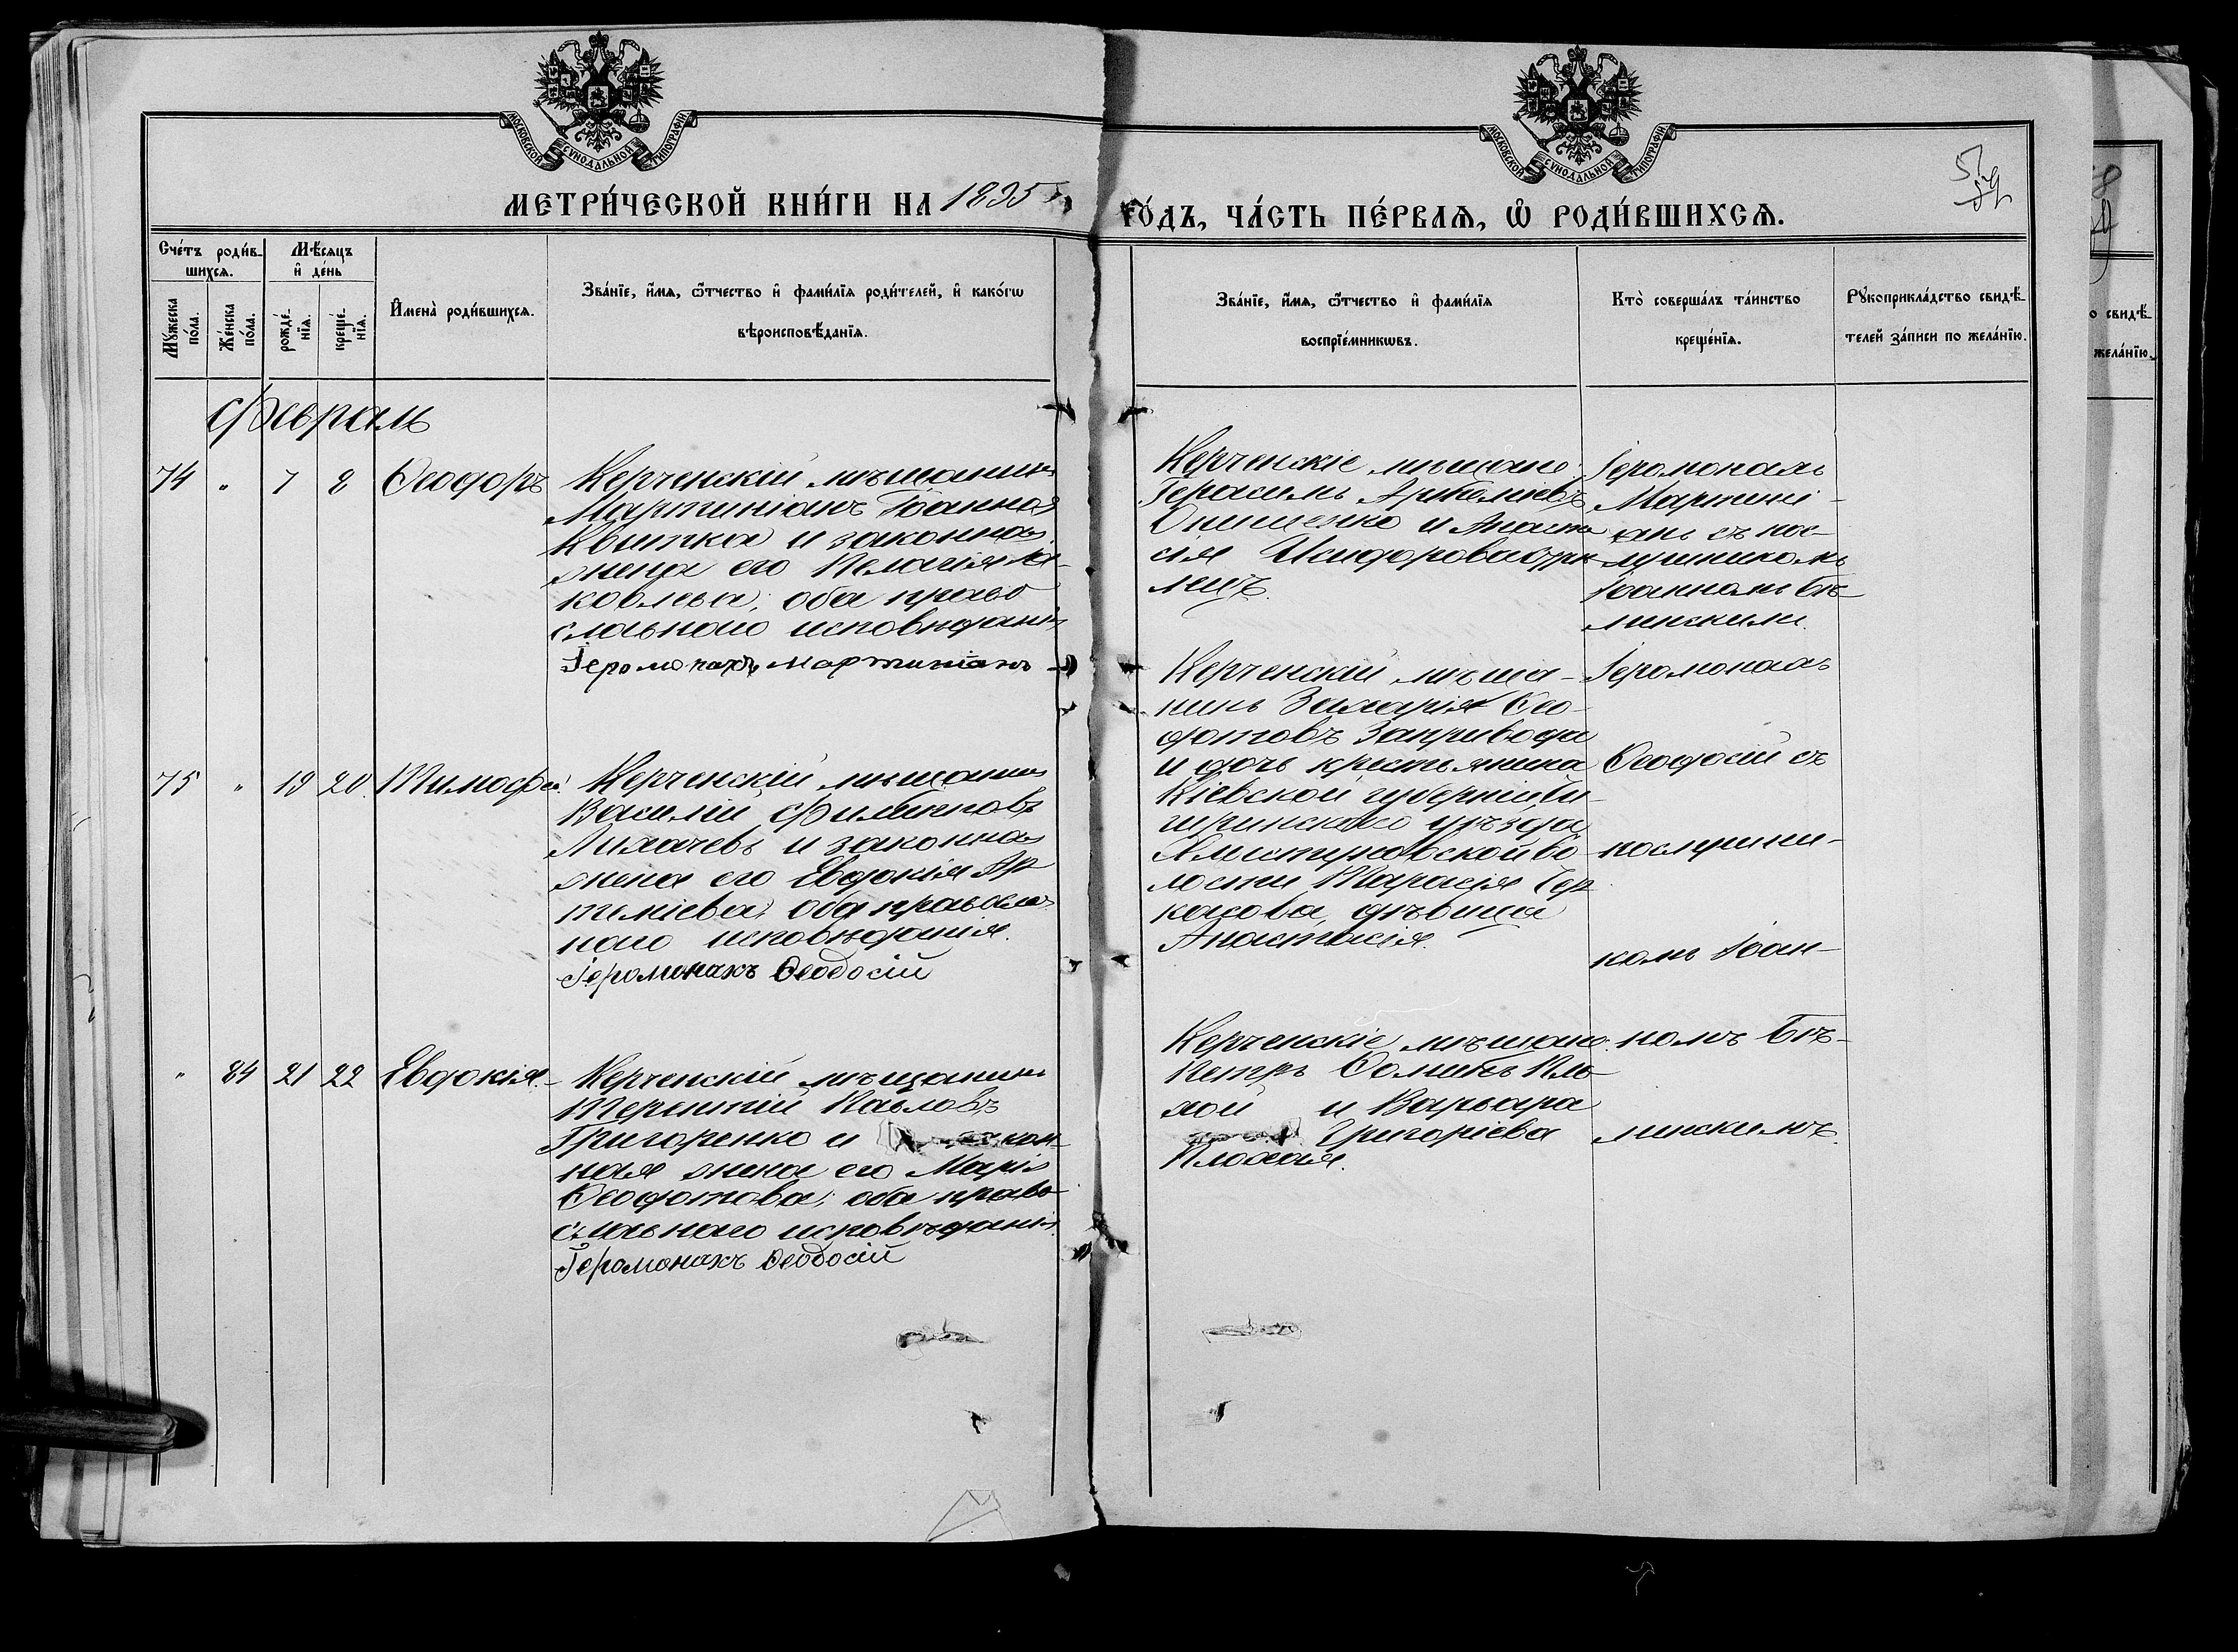 МОСКОВСКОЙ СУНОДАЛЬНОЙ ТИПОГРАФІИ
МОСКОВСКОЙ СУНОДАЛЬНОЙ ТИПОГРАФІИ
МЕТРИ́ЧЕСКОЙ КНИ́ГИ НА 1895 ГО́ДЪ, ЧА́СТЬ ПЕ́РВАѦ, Ѡ҆ РОДИ́ВШИХСѦ.
59
Сче́тъ роди́в-
шихсѧ.
Мꙋ́жеска
по́ла.
Же́нска
по́ла.
Мѣ́сѧцъ
и҆ де́нь
рожде́-
нїѧ.
креще́-
нїѧ.
И҆мена̀ роди́вшихсѧ.
Зва́нїе, и҆́мѧ, ѻ҆́тчество и҆ фами́лїѧ роди́телей, и҆ како́гѡ
вѣроисповѣ́данїѧ.
Зва́нїе, и҆́мѧ, ѻ҆́тчество и҆ фами́лїѧ
воспрїе́мникѡвъ.
Кто̀ соверша́лъ та́инство
креще́нїѧ.
Рꙋкоприкла́дство свидѣ́-
телей за́писи по жела́нїю.
о свидѣ́-
жела́нїю.
Февраль
74 " 7 8 Ѳеодоръ
Керченскій мѣщанинъ
Мартиніанъ Іоанновъ
Квитка и законная
жена его Пелагія Іа-
ковлева; оба право
славнаго исповѣданія
Іеромонахъ Мартиніанъ
Керченскіе мѣщане:
Герасимъ Артеміевъ
Онищенко и Анаста
сія Исидорова
Іеромонахъ
Мартині-
анъ съ пос-
лушникомъ
Іоанномъ Бѣ-
линскимъ.
75 " 19 20 Тимофей
Керченскій мѣщанинъ
Василій Филипповъ
Лихачевъ и законная
жена его Евдокія Ар
теміева; оба православ
наго исповѣданія.
Іеромонахъ Ѳеодосій
Керченскій мѣща-
нинъ Захарія Ѳео-
дотовъ Запривода
и дочь крестьянина
Кіевской губерніи Чи-
гиринскаго уѣзда
волости Тарасія Чер
касова, дѣвица
Анастасія.
Іеромонахъ
Ѳеодосій съ
послушни-
комъ Іоан-
номъ Бѣ-
линскимъ.
" 84 21 22 Евдокія.
Керченскій мѣщанинъ
Терентій Павловъ
Григоренко и закон-
ная жена его Марія
Ѳеодотова; оба право-
славнаго исповѣданія.
Іеромонахъ Ѳеодосій
Керченскіе мѣщане:
Петръ Ѳоминъ Пло-
хой и Варвара
Григоріева
Плохая.